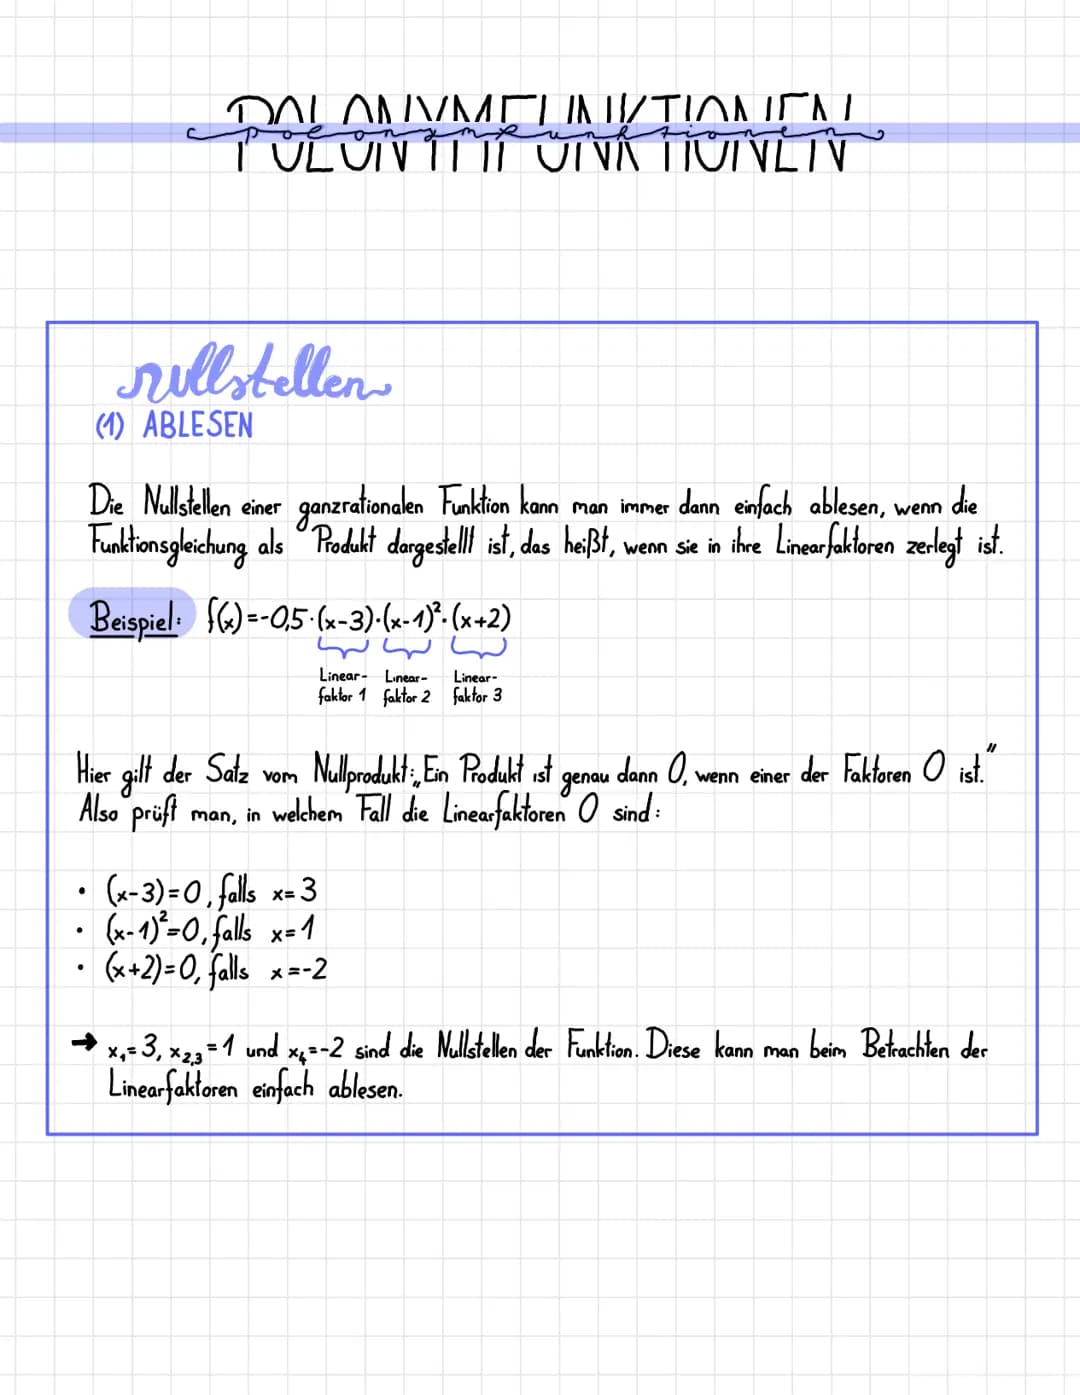 POLONYMFUNKTIONEN
polonymfunktionen
nullstellen
(1) ABLESEN
Die Nullstellen einer ganzrationalen Funktion kann man immer dann einfach ablesen, wenn die
Funktionsgleichung als Produkt dargestellt ist, das heißt, wenn sie in ihre Linearfaktoren zerlegt ist.
Beispiel: f(x)=-0,5·(x-3)·(x-1)²·(x+2)
Linear- Linear- Linear-
faktor 1 faktor 2 faktor 3
Hier gilt der Satz vom Nullprodukt: „Ein Produkt ist genau dann 0, wenn einer der Faktoren 0 ist."
Also prüft man, in welchem Fall die Linearfaktoren 0 sind:
• (x-3)=0, falls x=3
• (x-1)²=0, falls x=1
• (x+2)=0, falls x=-2
→ x₁=3, x₂,₃=1 und x₄=-2 sind die Nullstellen der Funktion. Diese kann man beim Betrachten der
Linearfaktoren einfach ablesen.